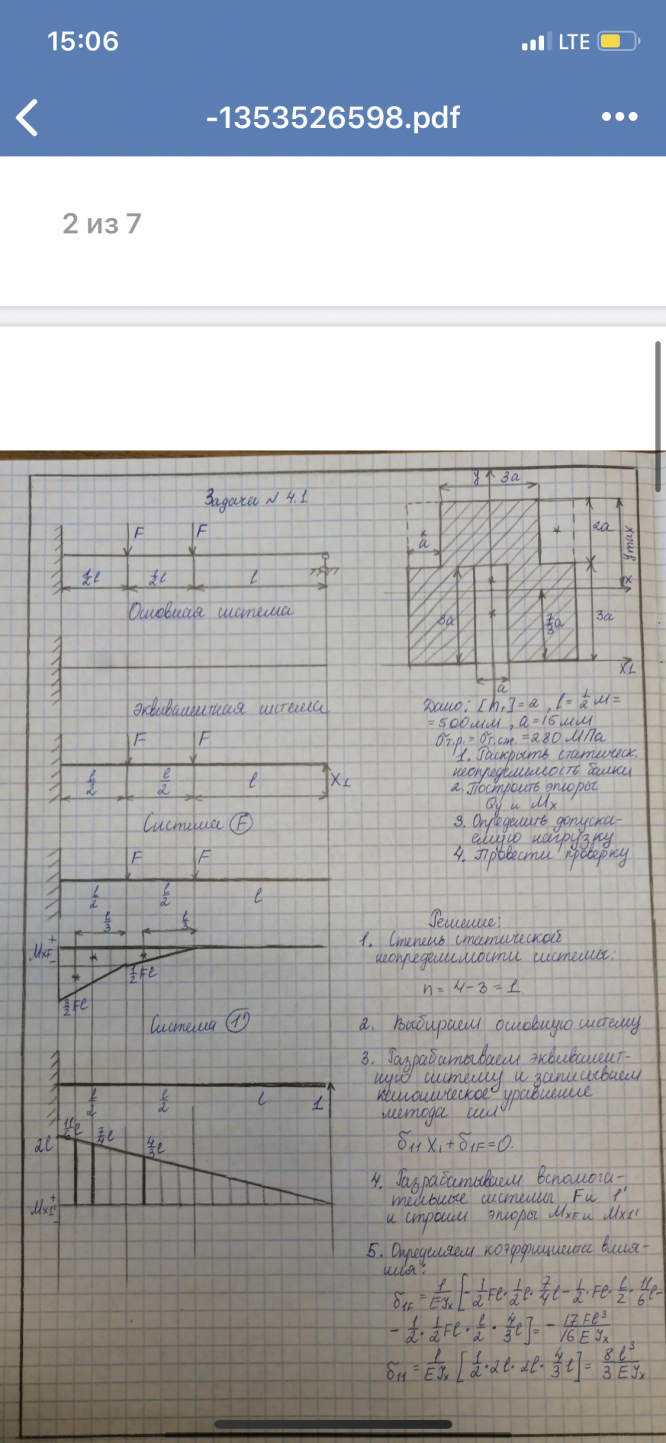 15:06
LTE
-1353526598.pdf
2 из 7
Задача № 4.1
F F
½l ½l l
Основная система
эквивалентная система
F F
l/2 l/2 l X1
Система F
F F
l/2 l/2 l
l/3 l/3
+
MxF -
½Fl
3/2 Fl
Система 1'
l/2 l/2 l 1
2l 11/6 l 7/4 l 4/3 l
+
Mx1' -
y 3a
a
2a
ymax
x
3a 7/3 a 3a
x1
a
Дано: [nт]=2, l=½м=
=500мм, a=15мм
σт.р.=σт.сж.=280 МПа
1. Раскрыть статическ.
неопределимость балки
2. Построить эпюры
Qy и Mx
3. Определить допуска-
емую нагрузку
4. Провести проверку
Решение:
1. Степень статической
неопределимости системы:
n=4-3=1
2. Выбираем основную систему
3. Разрабатываем эквивалент-
ную систему и записываем
каноническое уравнение
метода сил
δ11 X1+δ1F=0.
4. Разрабатываем вспомога-
тельные системы F и 1'
и строим эпюры MxF и Mx1'
5. Определяем коэффициенты влия-
ния:
δ1F=1/EJx[-½Fl·½l·7/4l-½·Fl·l/2·11/6l-
-½·½Fl·l/2·4/3l]=-17Fl³/16EJx
δ11=1/EJx[½·2l·2l·4/3l]=8l³/3EJx